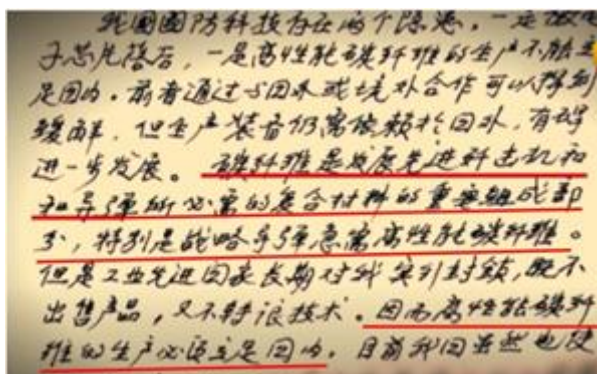 我国国防科技存在两个隐患,一是微电
子芯片落后,一是高性能碳纤维的生产不能立
足国内。前者通过与国外或境外合作可以得到
缓解,但生产装备仍需依赖于国外,有碍
进一步发展。碳纤维是发展先进歼击机和
和导弹所必需的复合材料的重要组成部
分,特别是战略导弹急需高性能碳纤维。
但是工业先进国家长期对我实行封锁,既不
出售产品,又不转让技术。因而高性能碳纤
维的生产必须立足国内。目前我国虽然也使